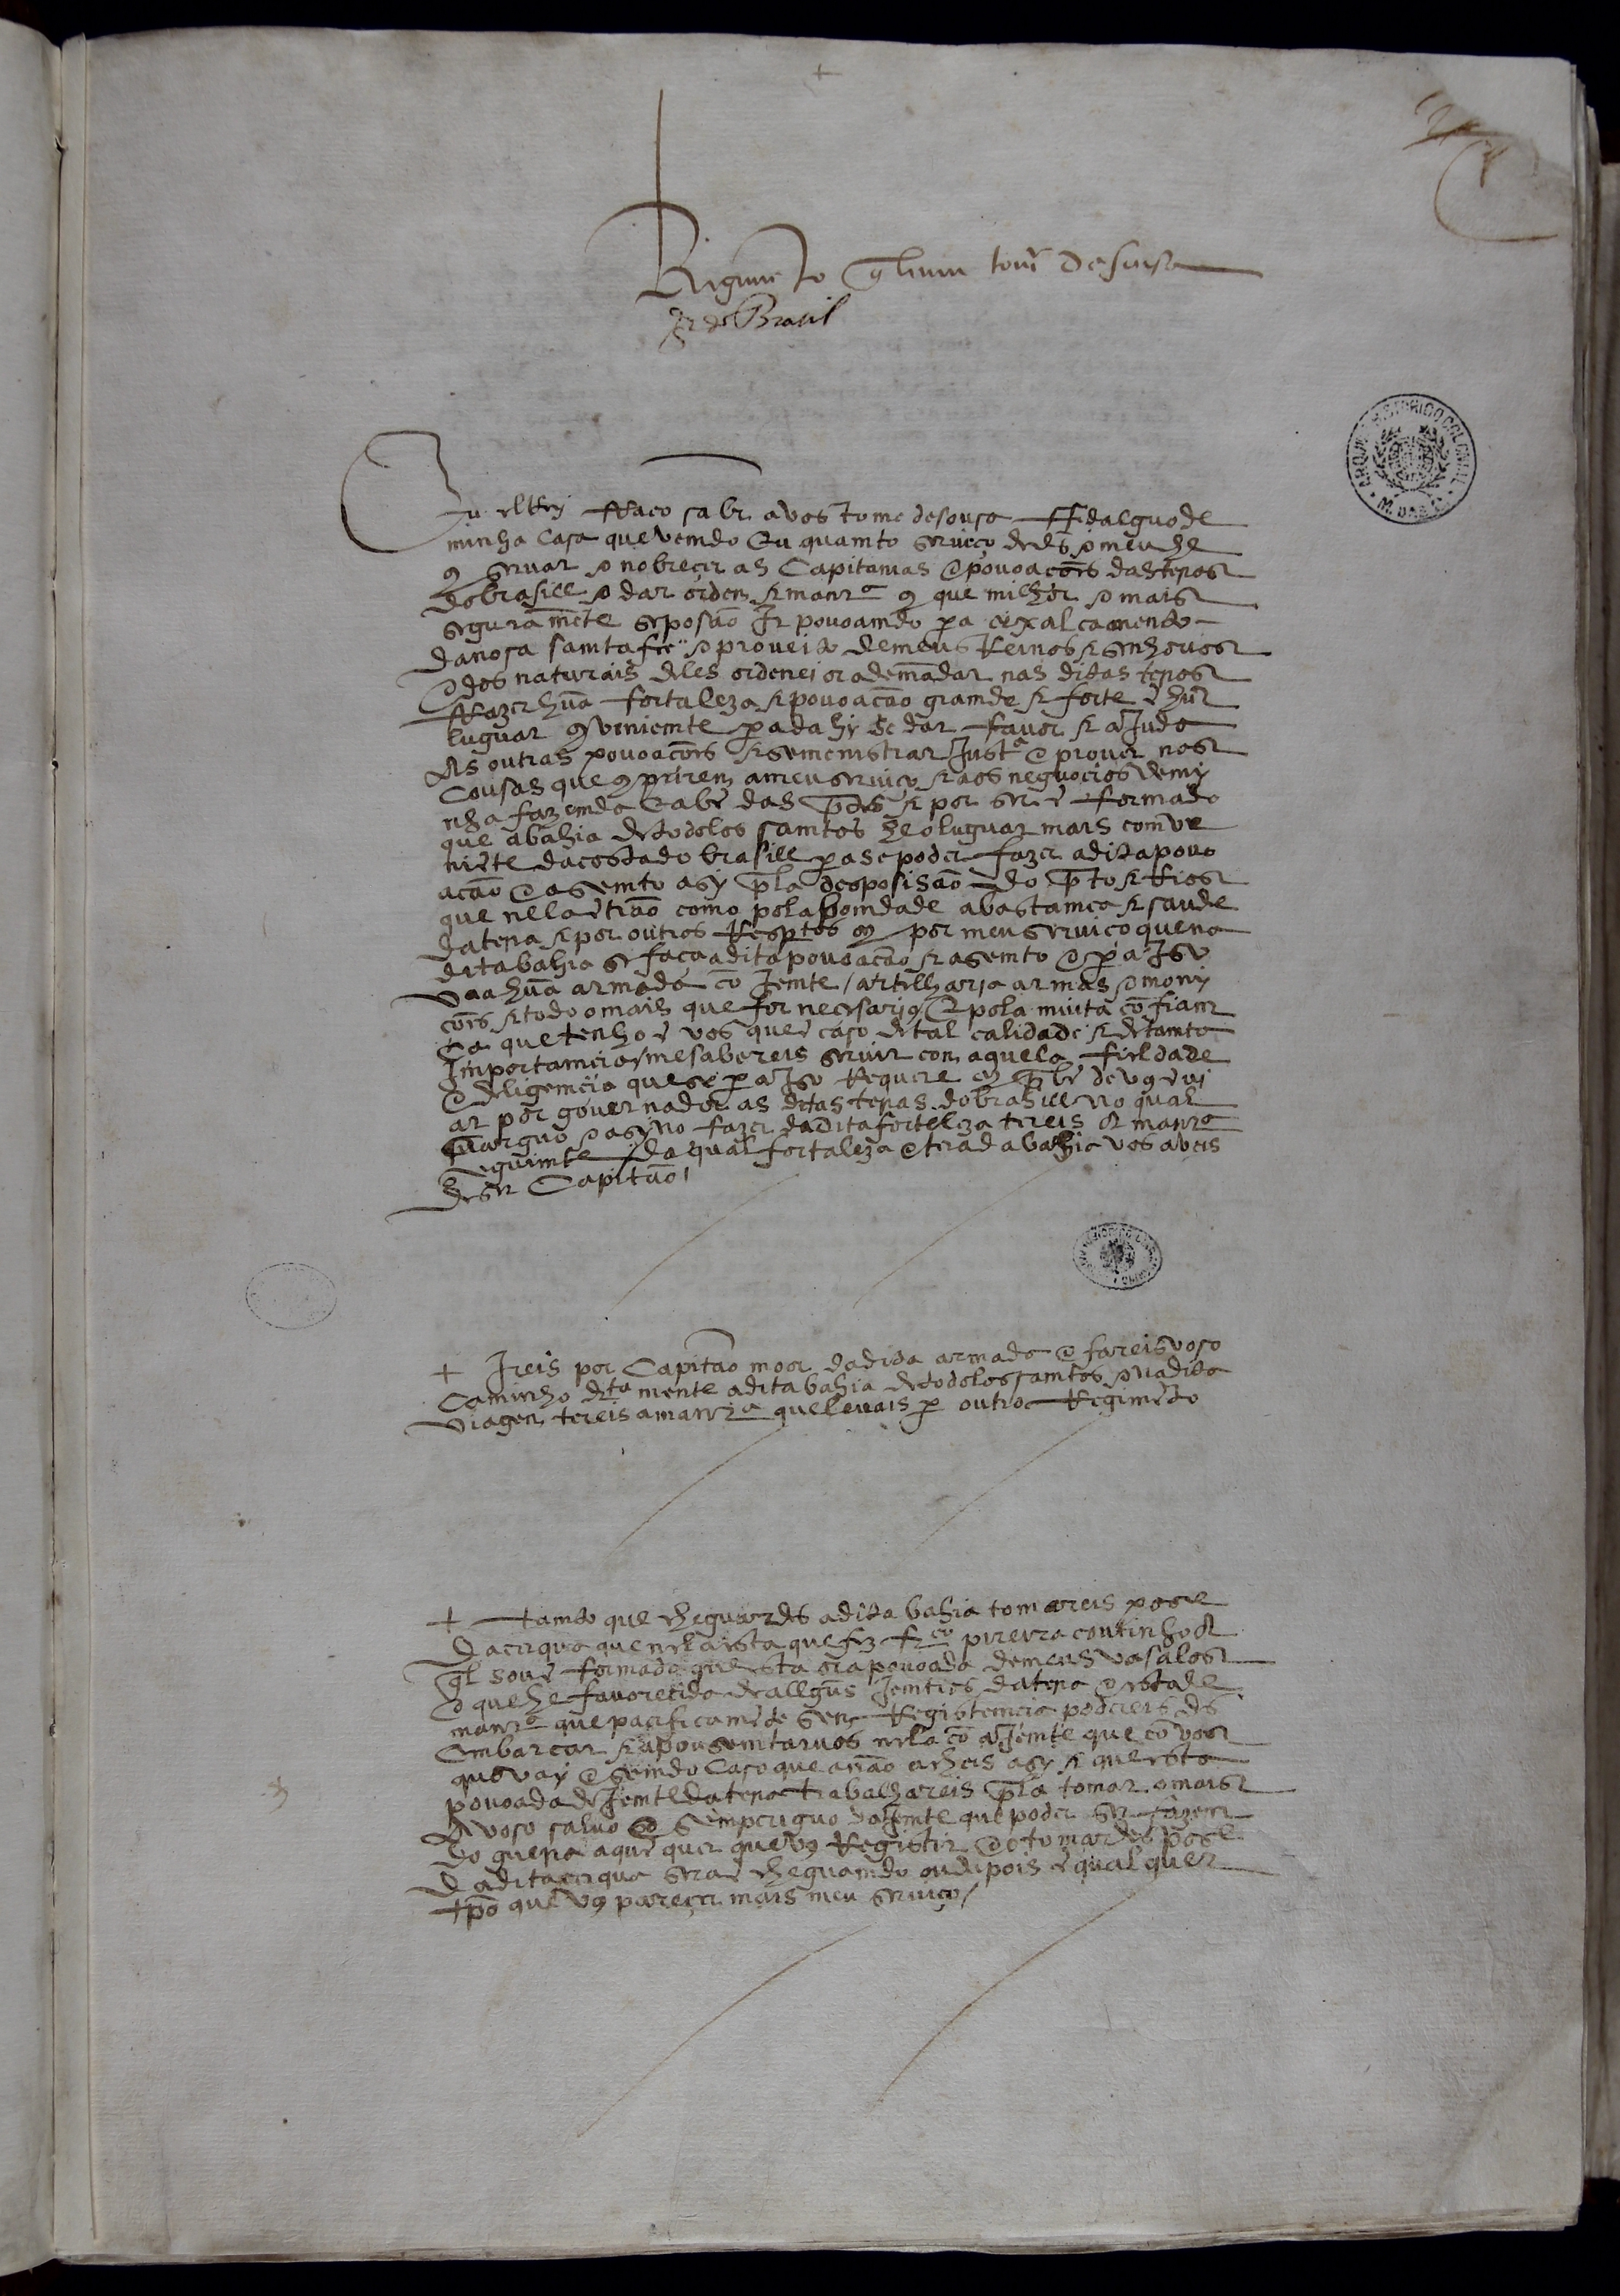 Regimẽto q̃ levou tomé de sousa
gor do Brasil
Eu elRey ffaço saber a vos tome de sousa ffidalguo de
minha casa que vemdo Eu quamto serviço de ds e meu he
comservar e nobrecer as Capitanias e povoações das terras
do brasill e dar ordem e manra com que milhor e mais
seguramẽte se posão Ir povoamdo pa eixalçamento
da nosa samta fee e proveito de meus Reinos e senhorios
e dos naturais deles ordenei ora de mãdar nas ditas terras
ffazer hũa fortaleza e povoação gramde e forte ẽ hũ
luguar comveniemte pa dahy se dar favor e aJuda
As outras povoações e se menistrar Justa e prover nas
Cousas que comprirem a meu serviço e aos neguocios de mi
nha fazemda e a bẽ das ptes e por ser ẽformado
que a bahia de todolos samtos he o luguar mais comve
niẽte da costa do brasill pa se poder fazer a dita povo
ação e asemto asy pla desposisão do porto e Rios
que nela ẽtrão como pola bomdade abastamça e saude
da terra e por outros Resptos ey por meu serviço que na
dita bahia se faça a dita povoação e asemto e pa Iso
vaa hũa armada cõ Jemte / artelharia armas e mony
ções e todo o mais que for necesario / E pola muita cõfiam
ça que tenho ẽ vos que ẽ caso de tal calidade e de tamta
Importamcia me sabereis servir com aquela fieldade
e deligemcia que se pa Iso Requere ey por bẽ de vos ẽvi
ar por governador as ditas terras do brasill no qual
carguo e asy no fazer da dita forteleza tereis A manra
seguimte / da qual fortaleza e terra da bahia vos aveis
de ser Capitão /
+ Ireis por Capitão moor da dita armada e fareis voso
Caminho dirtamente a dita bahia de todolos samtos e na dita
viagem tereis a manra que levais por outro Regimẽto
+ tamto que cheguardes a dita bahia tomareis pose
da cerqua que nela esta que fez frco pereira coutinho A
qual sou ẽformado que esta ora povoada de meus vasalos
e que he favorecida de allgũs Jemtios da terra e esta de
manra que pacificamẽte sem Registemcia podereis des
embarcar e apousemtarvos nela cõ a Jemte que cõ vos
quo vay e semdo Caso que a não acheis asy e que esta
povoada de Jemte da terra trabalhareis pla tomar o mais
A voso salvo e sem periguo da Jemte que poder ser fazem
do guerra a quẽ quer que vos Registir e o tomardes pose
da dita cerqua sera ẽ cheguamdo ou depois ẽ qual quer
tpo que vos parecer mais meu serviço /
ARQUIVO HISTORICO COLONIAL